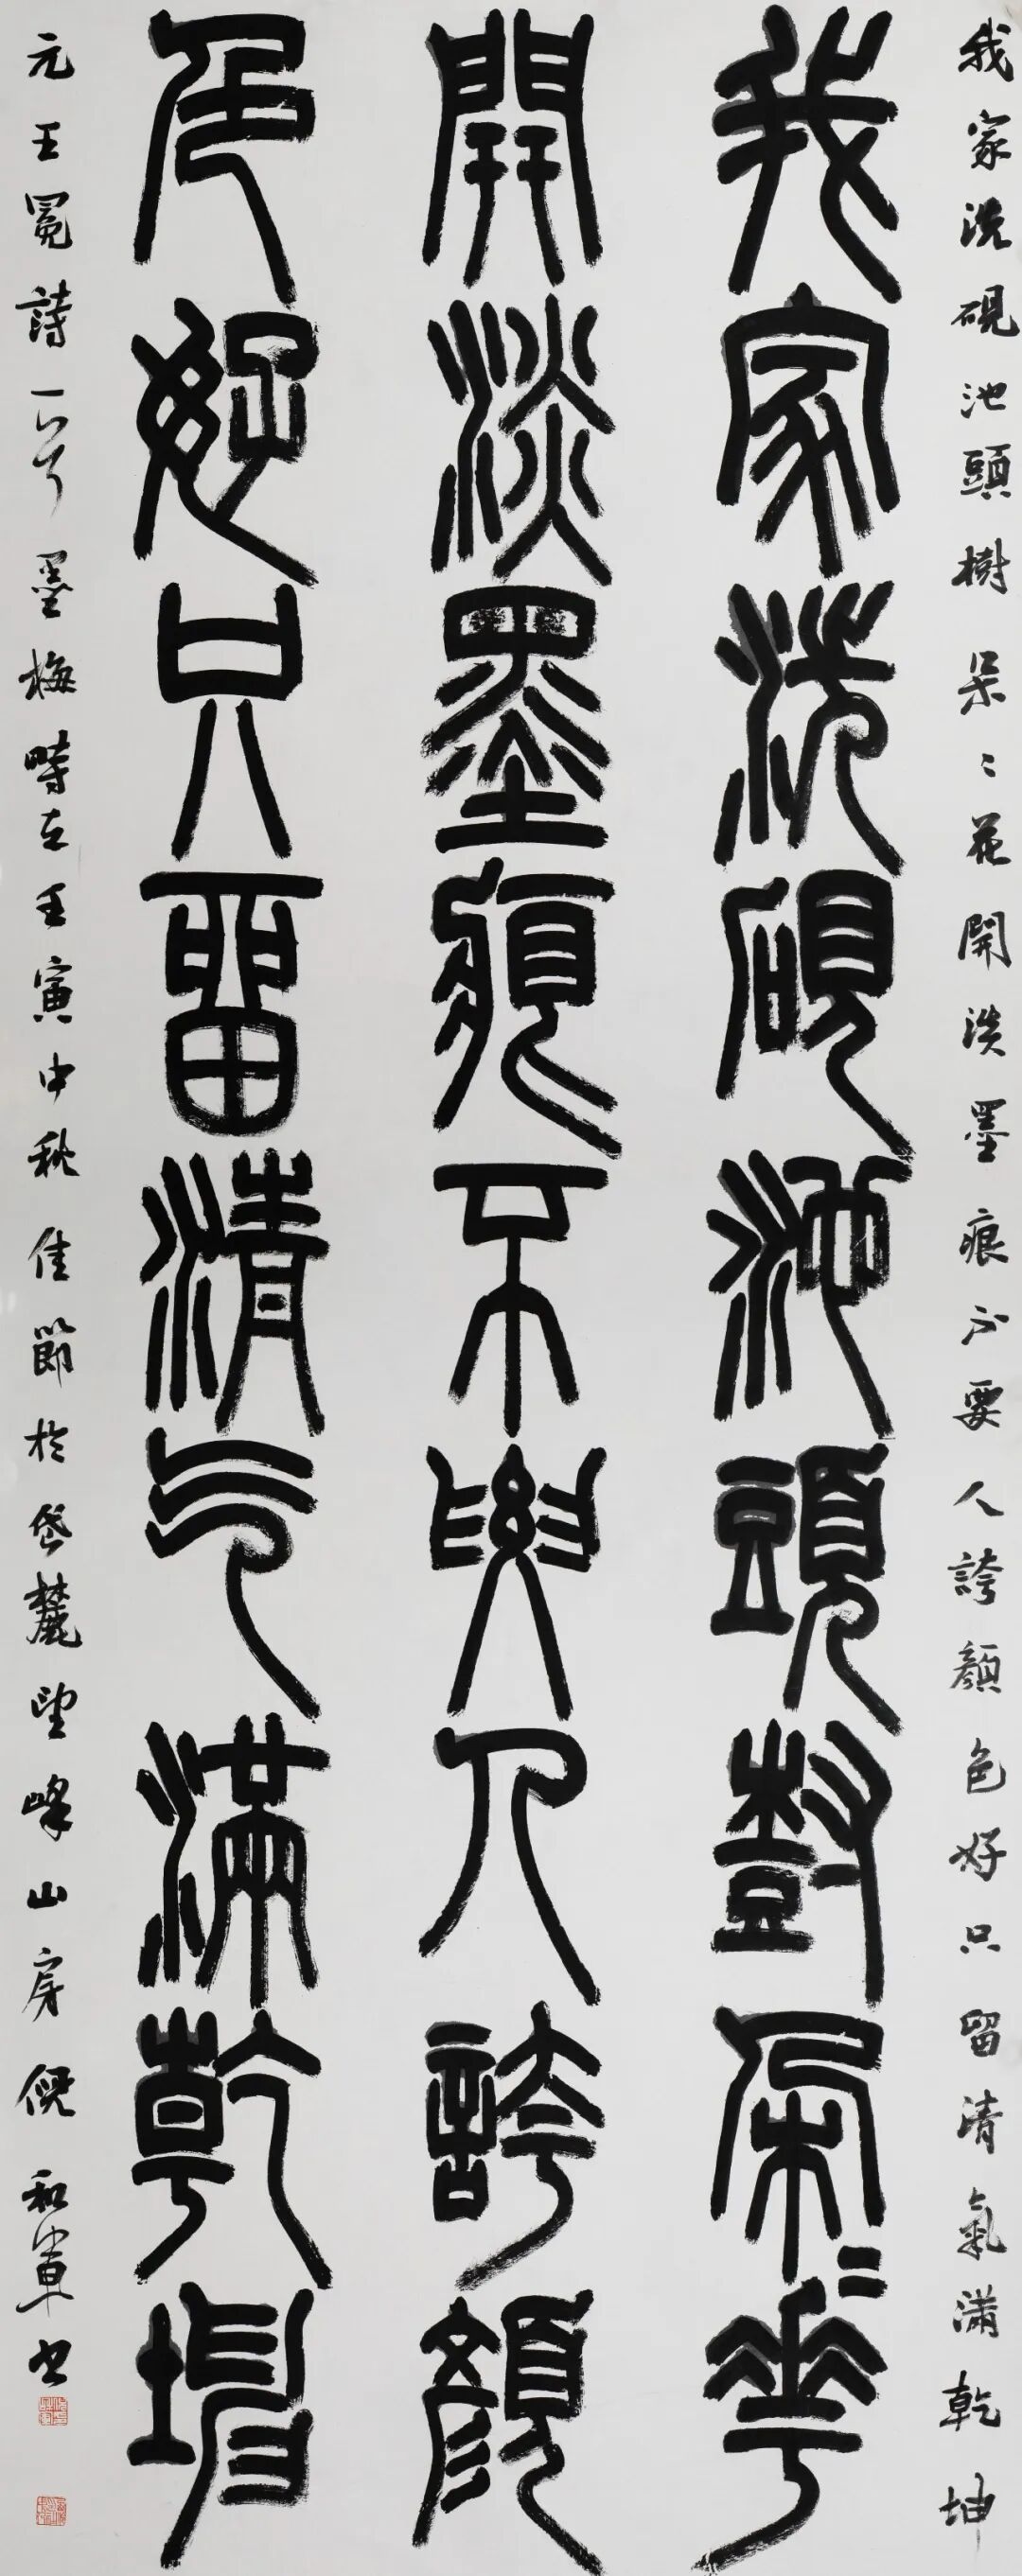 我家洗硯池頭樹朵〻花開淡墨痕不要人誇顏色好只留清氣滿乾坤
我家洗硯池頭樹朵〻花
開淡墨痕不要人誇顏
色好只留清气滿乾坤
元王冕詩一首墨梅時在壬寅中秋佳節於岱麓望峰山房倪和軍書